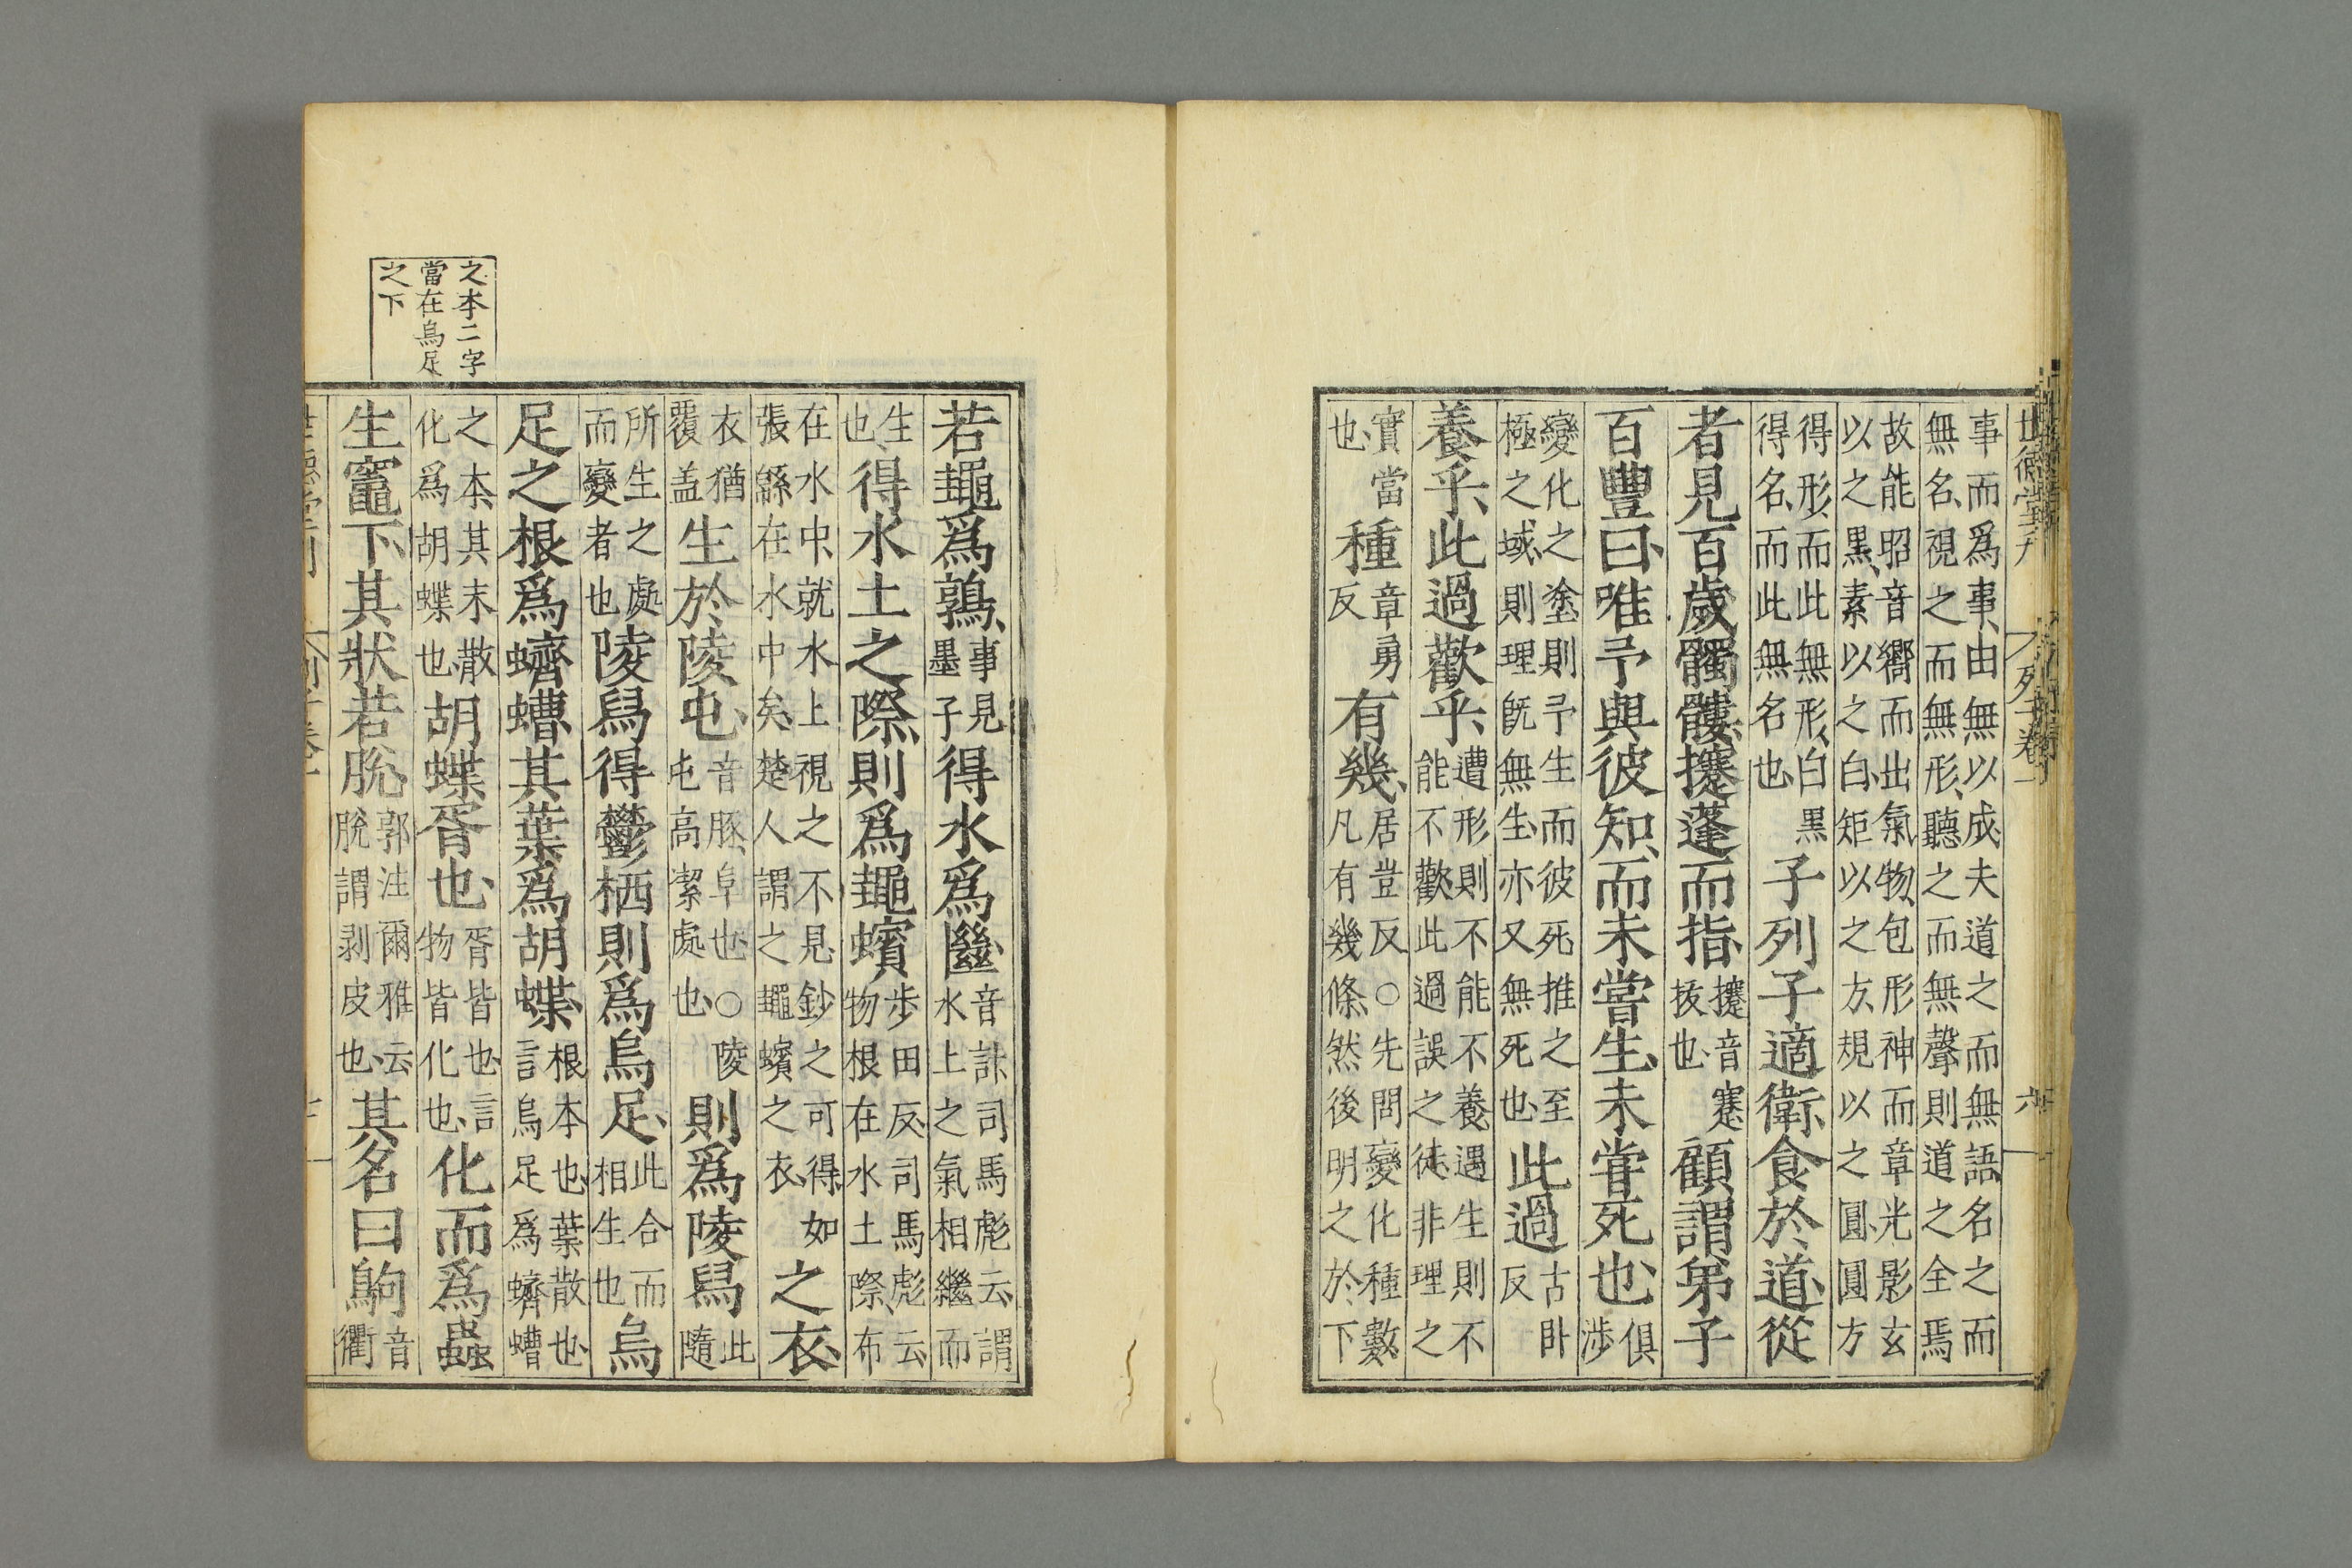 世德堂刊 列子卷一 六
事而爲事、由無以成、夫道之而無語、名之而
無名、視之而無形、聽之而無聲、則道之全焉
故能昭音嚮而出氣物、包形神而章光影、玄
以之黒、素以之白、矩以之方、規以之圓、圓方
得形、而此無形、白黒
得名、而此無名也、
子列子適衛、食於道、從
者見百歲髑髏、攓蓬而指、
攓音蹇
拔也、
顧謂弟子
百豐曰、唯予與彼知、而未嘗生、未嘗死也、
俱
渉
變化之塗、則予生而彼死、推之至
極之域、則理旣無生、亦又無死也、
此過
古卧
反
養乎、此過歡乎、
遭形則不能不養、遇生則不
能不歡、此過誤之徒、非理之
實當
也、
種
章勇
反
有幾、
居豈反○先問變化種數
凡有幾條、然後明之於下
若䵷爲鶉、
事見
墨子
得水爲㡭
音計司馬彪云、謂
水上之氣相繼而
生
也、
得水土之際、則爲䵷蠙
歩田反、司馬彪云、
物根在水土際、布
在水中、就水上視之不見、鈔之可得、如
張緜在水中矣、楚人謂之䵷蠙之衣、
之衣、
衣猶
覆盖
生於陵屯、
音豚、阜也、○陵
屯高潔處也、
則爲陵舄
此
隨
所生之處
而變者也
陵舄得鬱栖、則爲烏足、
此合而
相生也
烏
足之根爲蠐螬、其葉爲胡蝶、
根本也、葉散也、
言烏足爲蠐螬
之本、其末散
化爲胡蝶也、
胡蝶胥也、
胥皆也、言
物皆化也、
化而爲蟲
生竈下、其狀若脫、
郭注爾雅云
脫謂剥皮也、
其名曰鴝
音
衢
之本二字
當在烏足
之下